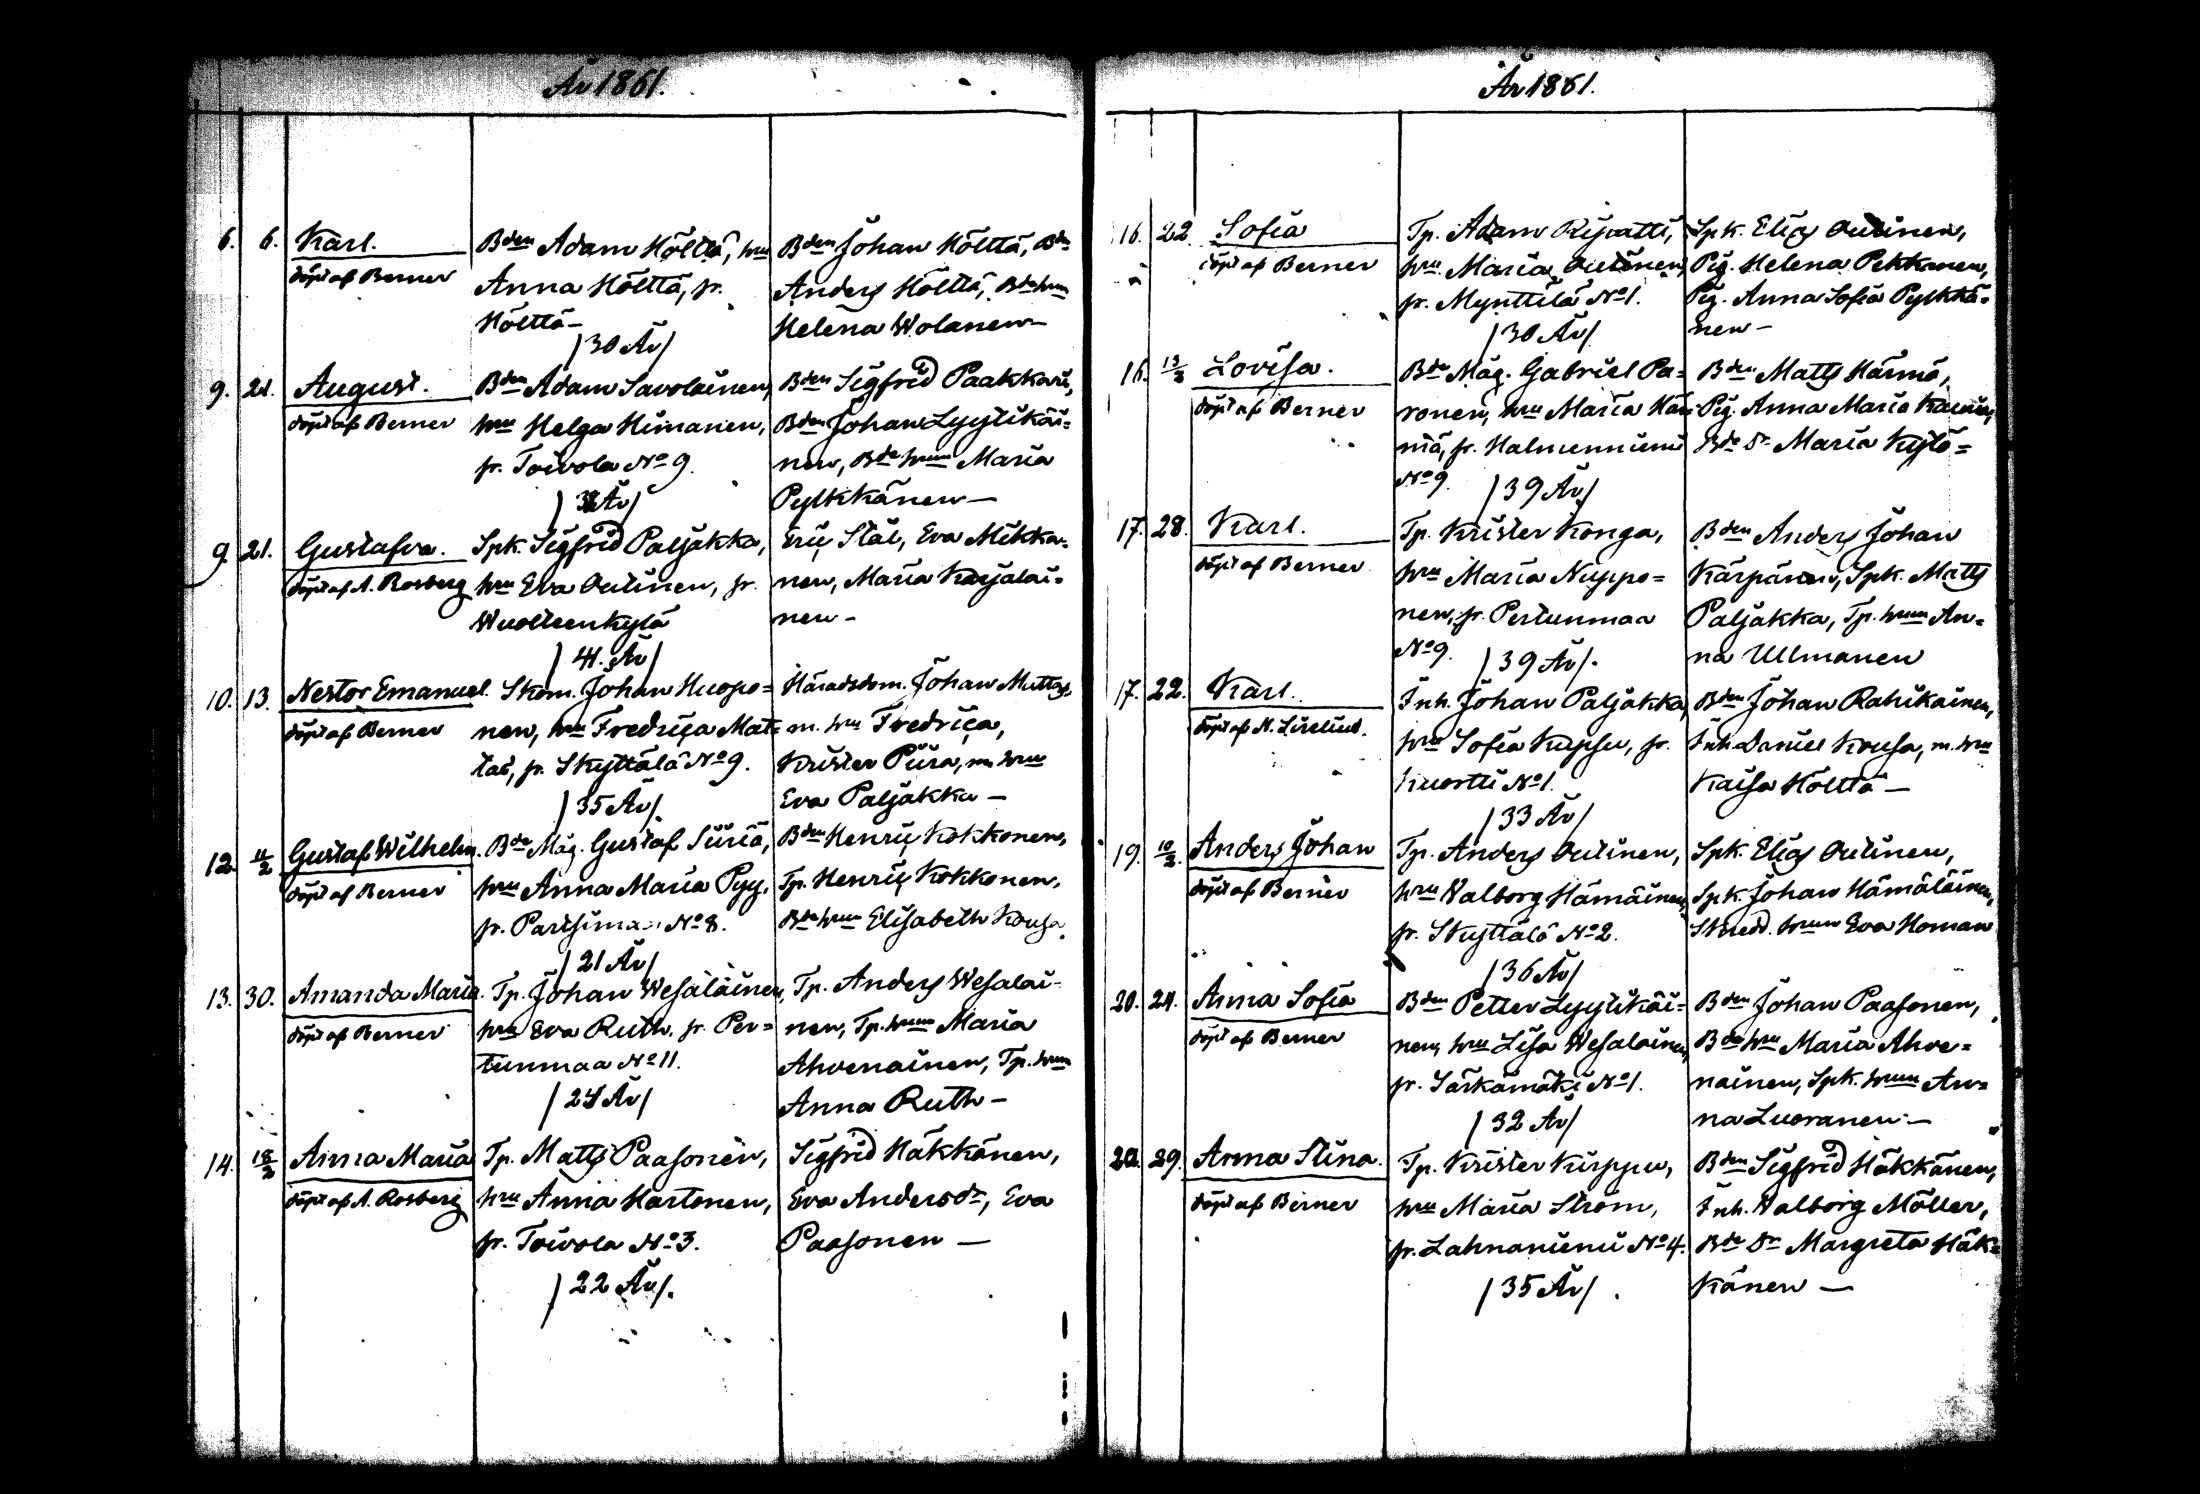 År 1861.
6. 6. Karl.
döpt af Berner
Bden Adam Hölttä, hru
Anna Hölttä, fr.
Hölttä –
/30 År/
Bden Johan Hölttä, Bde
Anders Hölttä, Bde hrun
Helena Wolanen –
9. 21. August.
döpt af Berner
Bden Adam Savolainen,
hru Helga Himanen,
fr. Toivola No 9.
Bden Sigfrid Paakkari,
Bden Johan Lyytikäi=
nen, Bde hrun Maria
Pylkkänen –
9. 21. Gustafva.
döpt af A. Rosberg
Spk. Sigfrid Paljakka,
hru Eva Outinen, fr.
Wuolteenkylä
/41. År/
Eric Stål, Eva Mikka=
nen, Maria Karjalai=
nen –
10. 13. Nestor Emanuel.
döpt af Berner
Skom. Johan Huopo=
nen, hru Fredrica Mat=
tas, fr. Skyttälä No 9.
/35 År/.
Häradsdom. Johan Mattas,
m. hru Fredrica,
Krister Piira, m. hru
Eva Paljakka –
12. 11/2 Gustaf Wilhelm.
döpt af Berner
Bde Måg. Gustaf Siiriä,
hru Anna Maria Pyy,
fr. No 8.
/21 År/
Bden Henric Kokkonen,
Tp. Henric Kokkonen,
Bde hrun Elisabeth Kousa.
13. 30. Amanda Maria.
döpt af Berner
Tp. Johan Wesalainen,
hru Eva Ruth, fr. Per=
tunmaa No 11.
/24 År/
Tp. Anders Wesalai=
nen, Tp. hrun Maria
Ahvenainen, Tp. hrun
Anna Ruth –
14. 18/2 Anna Maria
döpt af A. Rosberg
Tp. Matts Paasonen,
hru Anna Hartonen,
fr. Toivola No 3.
/22 År/.
Sigfrid Häkkänen,
Eva Andersdr, Eva
Paasonen –
År 1861.
16. 22 Sofia
döpt af Berner
Tp. Adam Ripatti,
hru Maria Outinen,
fr. Mynttilä No 1.
/30 År/
Spk. Elias Outinen,
Pig. Helena Pekkanen,
Pig. Anna Sofia Pylkkä=
nen –
16. 13/2 Lovisa.
döpt af Berner
Bde Måg. Gabriel Pa=
ronen, hru Maria Här=
mä, fr. Halmenniemi
No 9. /39 År/
Bden Matts Härmä,
Pig. Anna Maria
Bde Dr Maria
17. 28. Karl.
döpt af Berner
Tp. Krister Konga,
hru Maria Nuppo=
nen, fr. Pertunmaa
No 9. /39 År/.
Bden Anders Johan
Kärpänen, Spk. Matts
Paljakka, Tp. hrun An=
na Ullmanen
17. 22. Karl.
döpt af N. Lirelius.
Inh. Johan Paljakka,
hru Sofia Kuppu, fr.
Kuortti No 1.
/33 År/
Bden Johan Rahikainen,
Inh. Daniel Kousa, m. hru
Kaisa Hölttä –
19. 10/2. Anders Johan
döpt af Berner
Tp. Anders Outinen,
hru Walborg Hämäinen,
fr. Skyttälä No 2.
/36 År/
Spk. Elias Outinen,
Spk. Johan Hämäläinen,
Skredd. hrun Eva Homan
20. 24. Anna Sofia
döpt af Berner
Bden Petter Lyytikäi=
nen, hru Lisa Wesalainen,
fr. Särkämäki No 1.
/32 År/
Bden Johan Paasonen,
Bde hru Maria Ahve=
nainen, Spk. hrun An=
na Luoranen –
22. 29. Anna Stina.
döpt af Berner
Tp. Krister Kuppu,
hru Maria Ström,
fr. Lahnaniemi No 4.
/35 År/.
Bden Sigfrid Häkkänen,
Inh. Walborg Möller,
Bde Dr Margreta Häk=
känen –